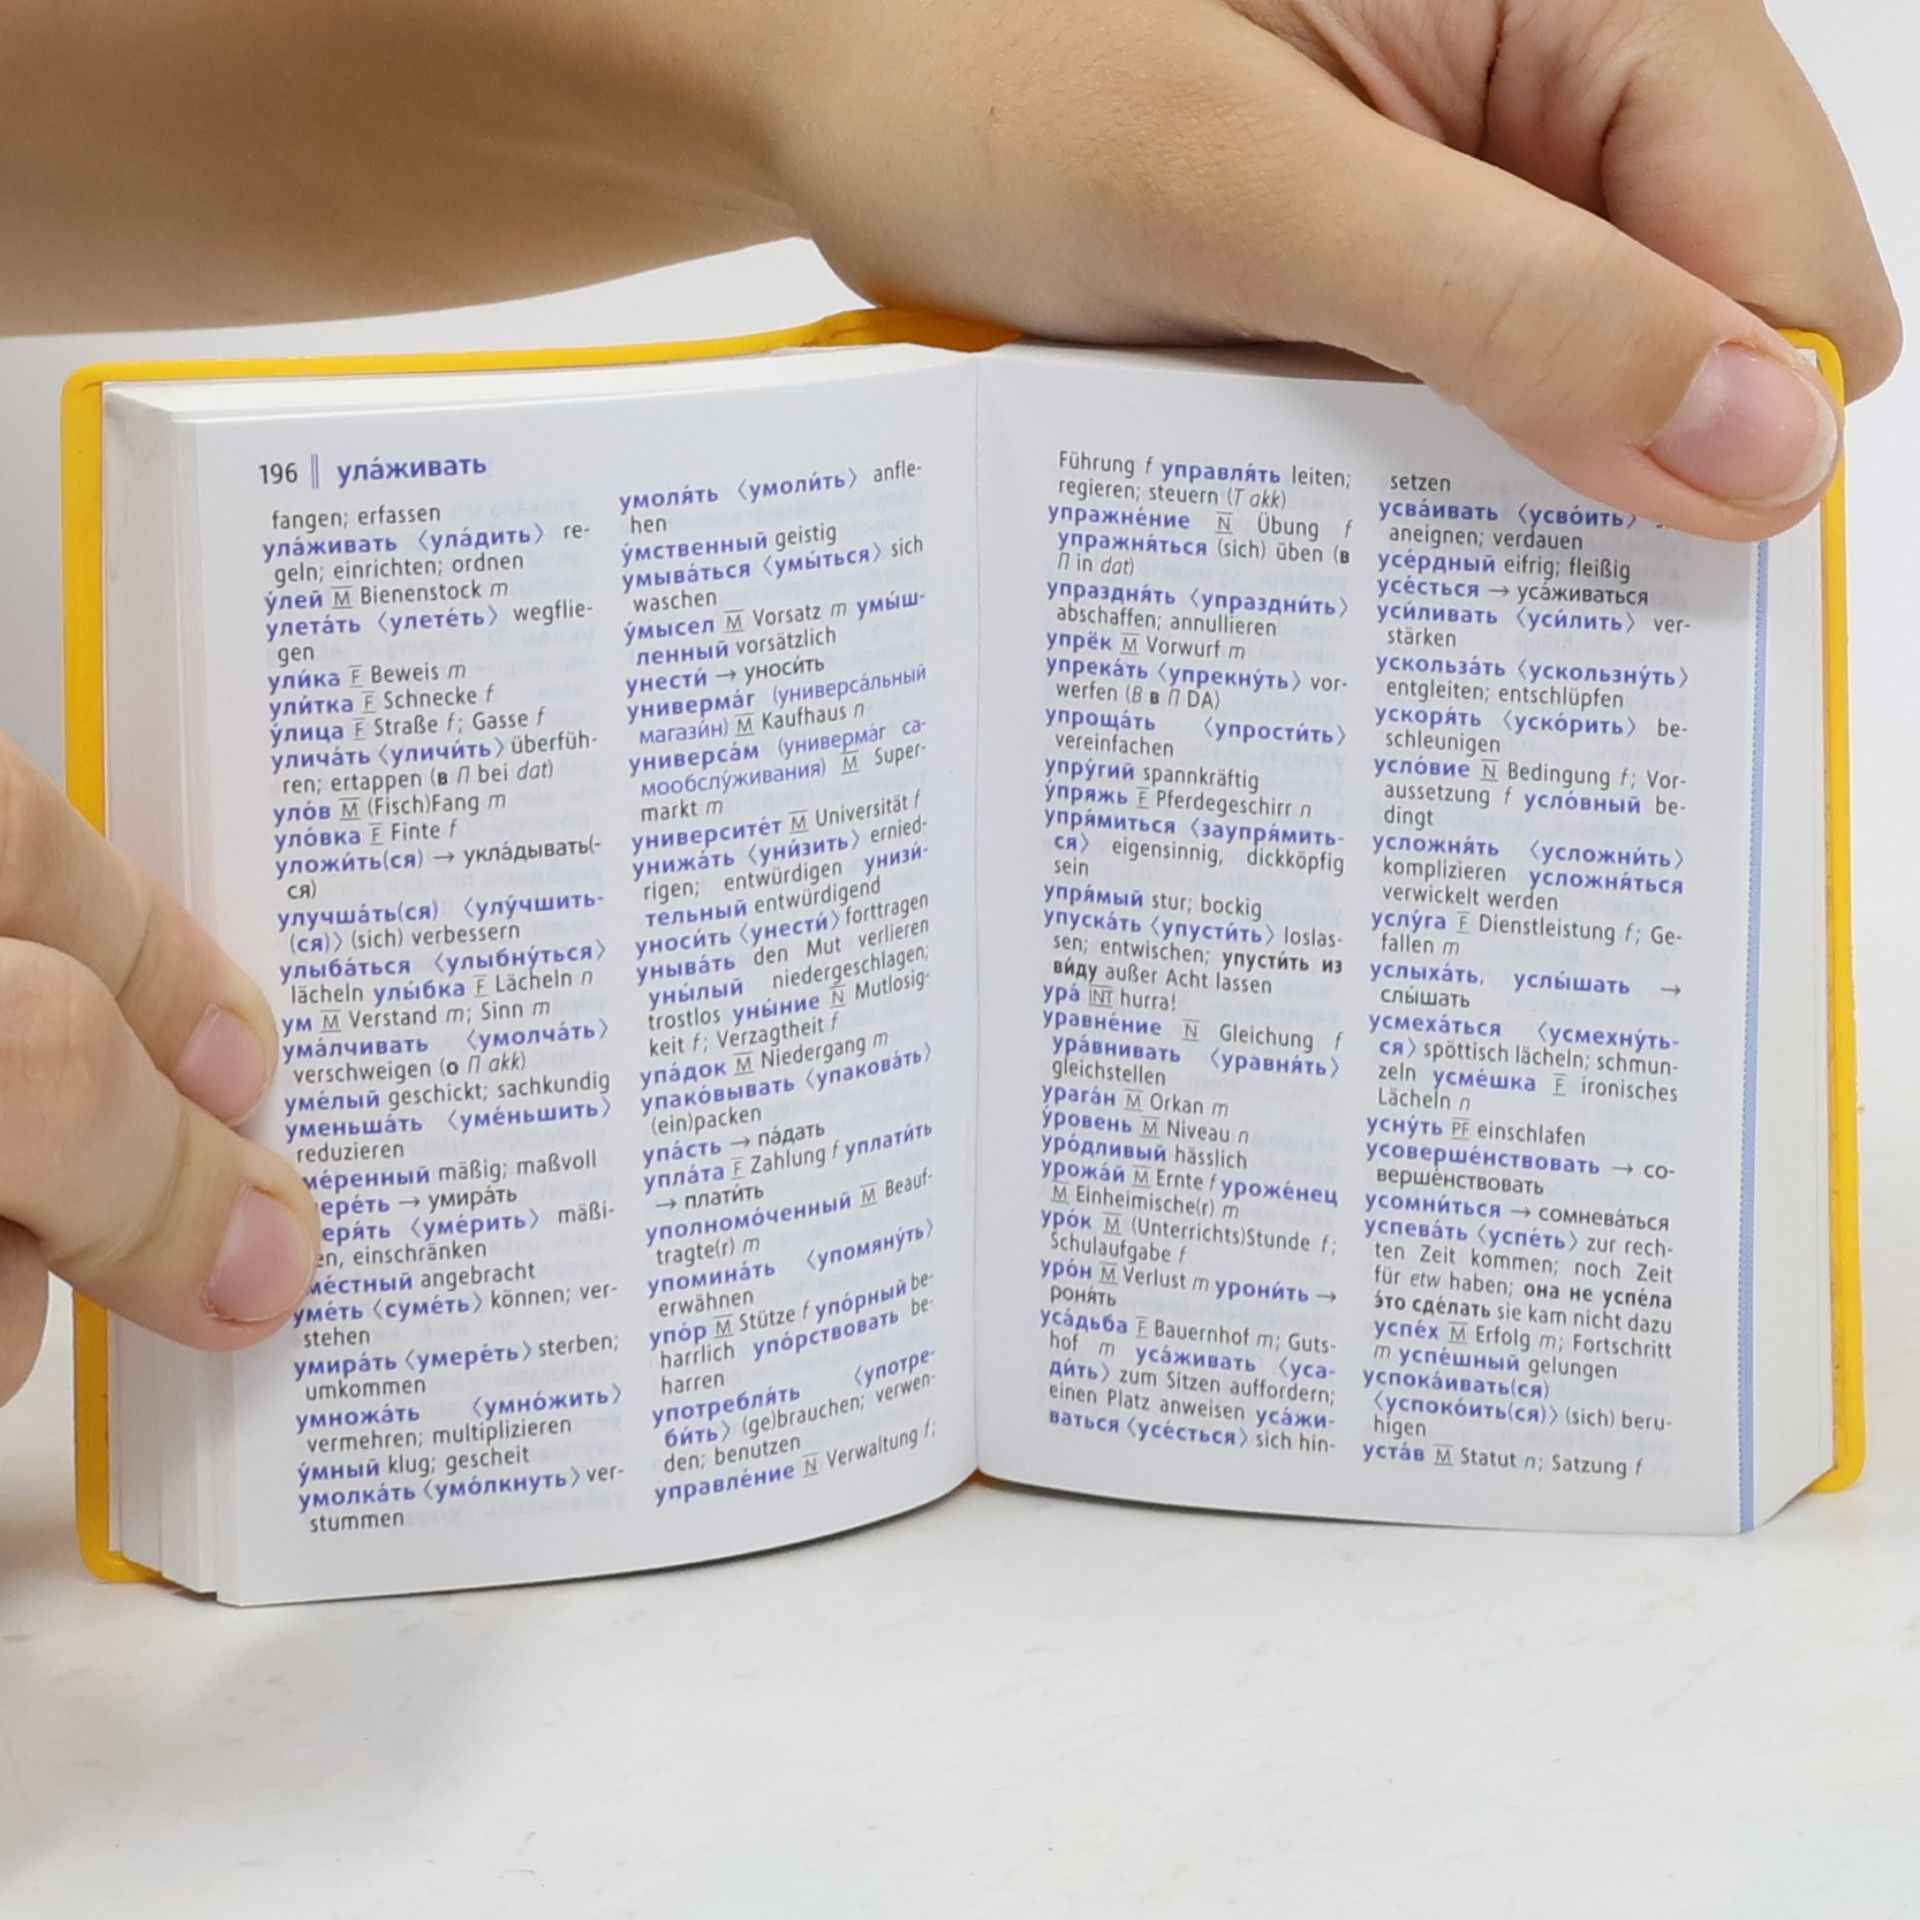 196 ‖ ула́живать
fangen; erfassen
ула́живать 〈ула́дить〉 re-
geln; einrichten; ordnen
у́лей M Bienenstock m
улета́ть 〈улете́ть〉 wegflie-
gen
ули́ка F Beweis m
ули́тка F Schnecke f
у́лица F Straße f; Gasse f
улича́ть 〈уличи́ть〉 überfüh-
ren; ertappen (в П bei dat)
уло́в M (Fisch)Fang m
уло́вка F Finte f
уложи́ть(ся) → укла́дывать(-
ся)
улучша́ть(ся) 〈улу́чшить-
(ся)〉 (sich) verbessern
улыба́ться 〈улыбну́ться〉
lächeln улы́бка F Lächeln n
ум M Verstand m; Sinn m
ума́лчивать 〈умолча́ть〉
verschweigen (о П akk)
уме́лый geschickt; sachkundig
уменьша́ть 〈уме́ньшить〉
reduzieren
ме́ренный mäßig; maßvoll
ере́ть → умира́ть
еря́ть 〈уме́рить〉 mäßi-
en, einschränken
ме́стный angebracht
уме́ть 〈суме́ть〉 können; ver-
stehen
умира́ть 〈умере́ть〉 sterben;
umkommen
умножа́ть 〈умно́жить〉
vermehren; multiplizieren
у́мный klug; gescheit
умолка́ть 〈умо́лкнуть〉 ver-
stummen
умоля́ть 〈умоли́ть〉 anfle-
hen
у́мственный geistig
умыва́ться 〈умы́ться〉 sich
waschen
у́мысел M Vorsatz m умы́ш-
ленный vorsätzlich
унести́ → уноси́ть
универма́г (универса́льный
магази́н) M Kaufhaus n
универса́м (универма́г са-
мообслу́живания) M Super-
markt m
университе́т M Universität f
унижа́ть 〈уни́зить〉 ernied-
rigen; entwürdigen унизи́-
тельный entwürdigend
уноси́ть 〈унести́〉 forttragen
уныва́ть den Mut verlieren
уны́лый niedergeschlagen;
trostlos уны́ние N Mutlosig-
keit f; Verzagtheit f
упа́док M Niedergang m
упако́вывать 〈упакова́ть〉
(ein)packen
упа́сть → па́дать
упла́та F Zahlung f уплати́ть
→ плати́ть
уполномо́ченный M Beauf-
tragte(r) m
упомина́ть 〈упомяну́ть〉
erwähnen
упо́р M Stütze f упо́рный be-
harrlich упо́рствовать be-
harren
употребля́ть 〈употре-
би́ть〉 (ge)brauchen; verwen-
den; benutzen
управле́ние N Verwaltung f;
Führung f управля́ть leiten;
regieren; steuern (T akk)
упражне́ние N Übung f
упражня́ться (sich) üben (в
П in dat)
упраздня́ть 〈упраздни́ть〉
abschaffen; annullieren
упрёк M Vorwurf m
упрека́ть 〈упрекну́ть〉 vor-
werfen (В в П DA)
упроща́ть 〈упрости́ть〉
vereinfachen
упру́гий spannkräftig
у́пряжь F Pferdegeschirr n
упря́миться 〈заупря́мить-
ся〉 eigensinnig, dickköpfig
sein
упря́мый stur; bockig
упуска́ть 〈упусти́ть〉 loslas-
sen; entwischen; упусти́ть из
ви́ду außer Acht lassen
ура́ INT hurra!
уравне́ние N Gleichung f
ура́внивать 〈уравня́ть〉
gleichstellen
урага́н M Orkan m
у́ровень M Niveau n
уро́дливый hässlich
урожа́й M Ernte f уроже́нец
M Einheimische(r) m
уро́к M (Unterrichts)Stunde f;
Schulaufgabe f
уро́н M Verlust m урони́ть →
роня́ть
уса́дьба F Bauernhof m; Guts-
hof m уса́живать 〈уса-
ди́ть〉 zum Sitzen auffordern;
einen Platz anweisen уса́жи-
ваться 〈усе́сться〉 sich hin-
setzen
усва́ивать 〈усво́ить〉
aneignen; verdauen
усе́рдный eifrig; fleißig
усе́сться → уса́живаться
уси́ливать 〈уси́лить〉 ver-
stärken
ускольза́ть 〈ускользну́ть〉
entgleiten; entschlüpfen
ускоря́ть 〈уско́рить〉 be-
schleunigen
усло́вие N Bedingung f; Vor-
aussetzung f усло́вный be-
dingt
усложня́ть 〈усложни́ть〉
komplizieren усложня́ться
verwickelt werden
услу́га F Dienstleistung f; Ge-
fallen m
услыха́ть, услы́шать →
слы́шать
усмеха́ться 〈усмехну́ть-
ся〉 spöttisch lächeln; schmun-
zeln усме́шка F ironisches
Lächeln n
усну́ть PF einschlafen
усоверше́нствовать → со-
верше́нствовать
усомни́ться → сомнева́ться
успева́ть 〈успе́ть〉 zur rech-
ten Zeit kommen; noch Zeit
für etw haben; она не успе́ла
э́то сде́лать sie kam nicht dazu
успе́х M Erfolg m; Fortschritt
m успе́шный gelungen
успока́ивать(ся)
〈успоко́ить(ся)〉 (sich) beru-
higen
уста́в M Statut n; Satzung f